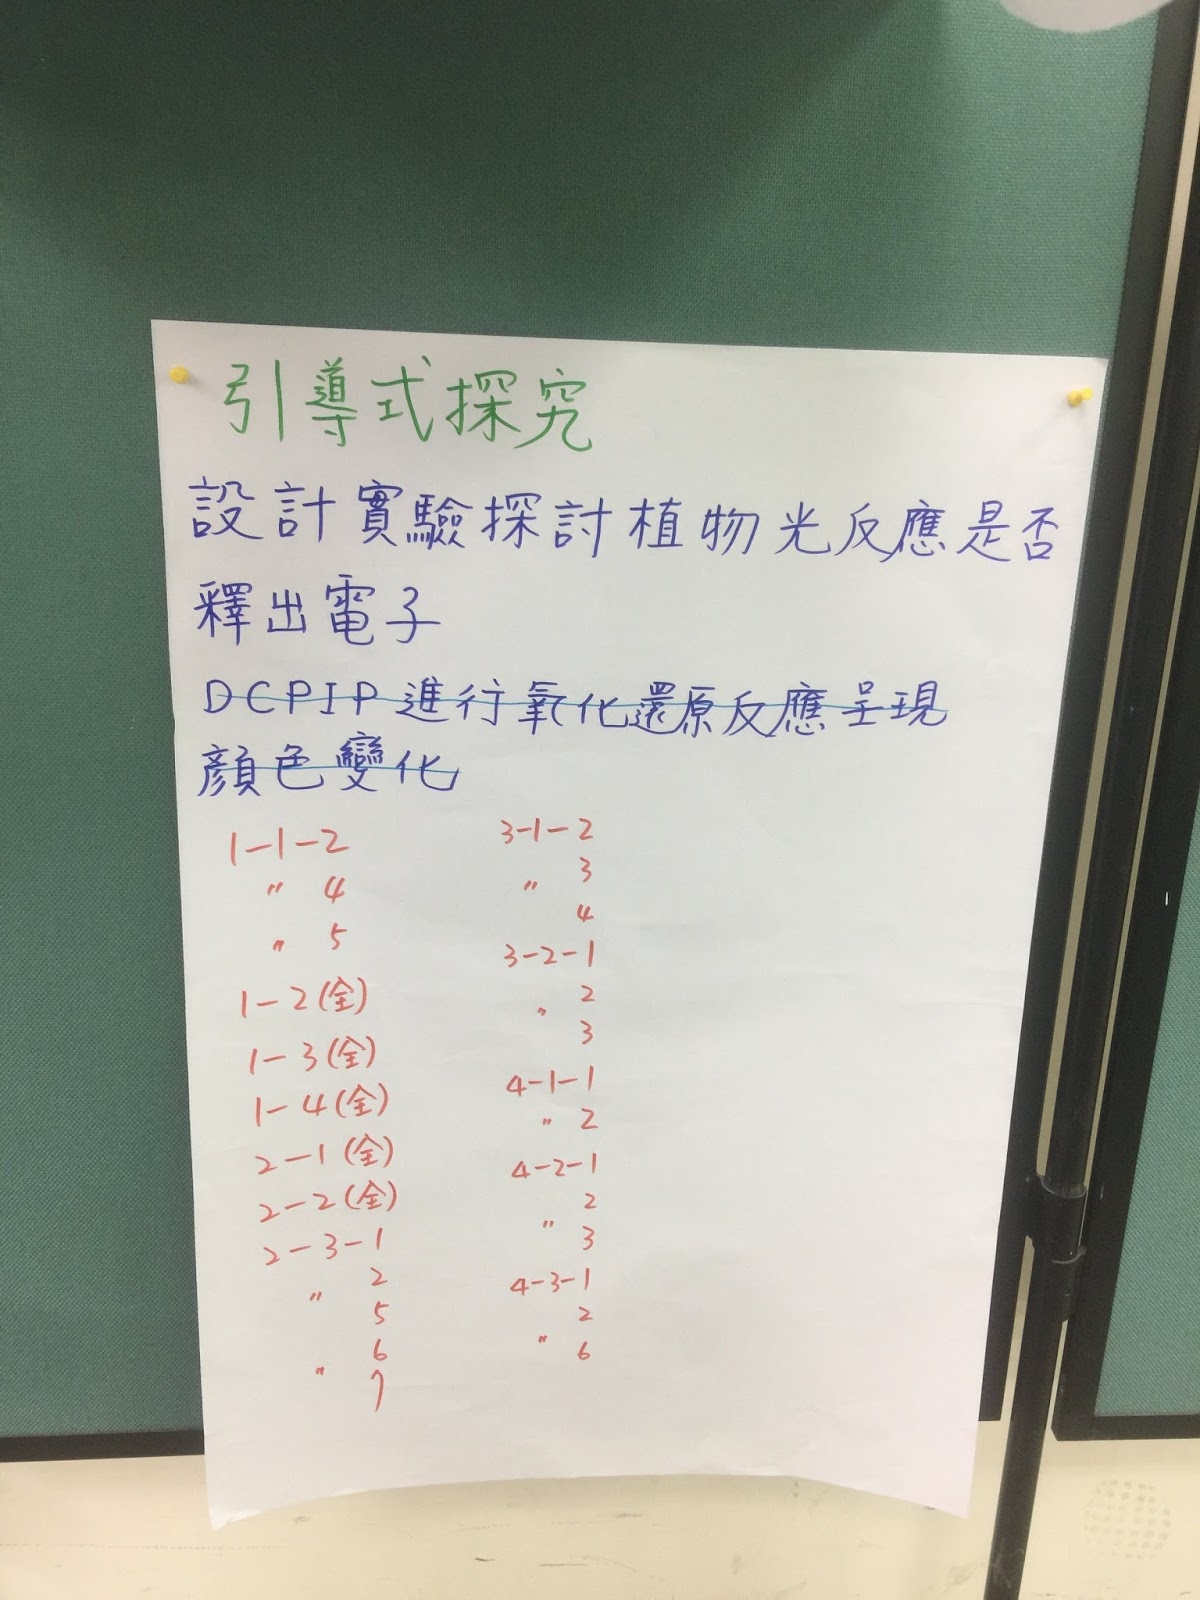 引導式探究
設計實驗探討植物光反應是否
釋出電子
DCPIP進行氧化還原反應呈現
顏色變化
1-1-2
〃 4
〃 5
1-2(全)
1-3(全)
1-4(全)
2-1(全)
2-2(全)
2-3-1
〃 2
5
6
〃 7
3-1-2
〃 3
4
3-2-1
〃 2
3
4-1-1
〃 2
4-2-1
2
〃 3
4-3-1
2
〃 6